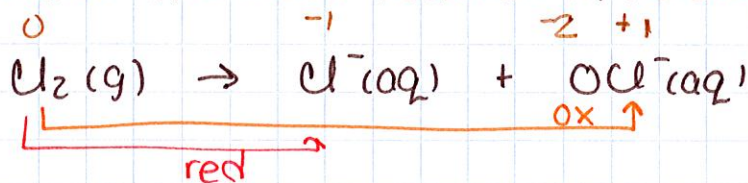 0 -1 -2 +1
Cl₂ (g) → Cl⁻(aq) + OCl⁻(aq)
ox
red